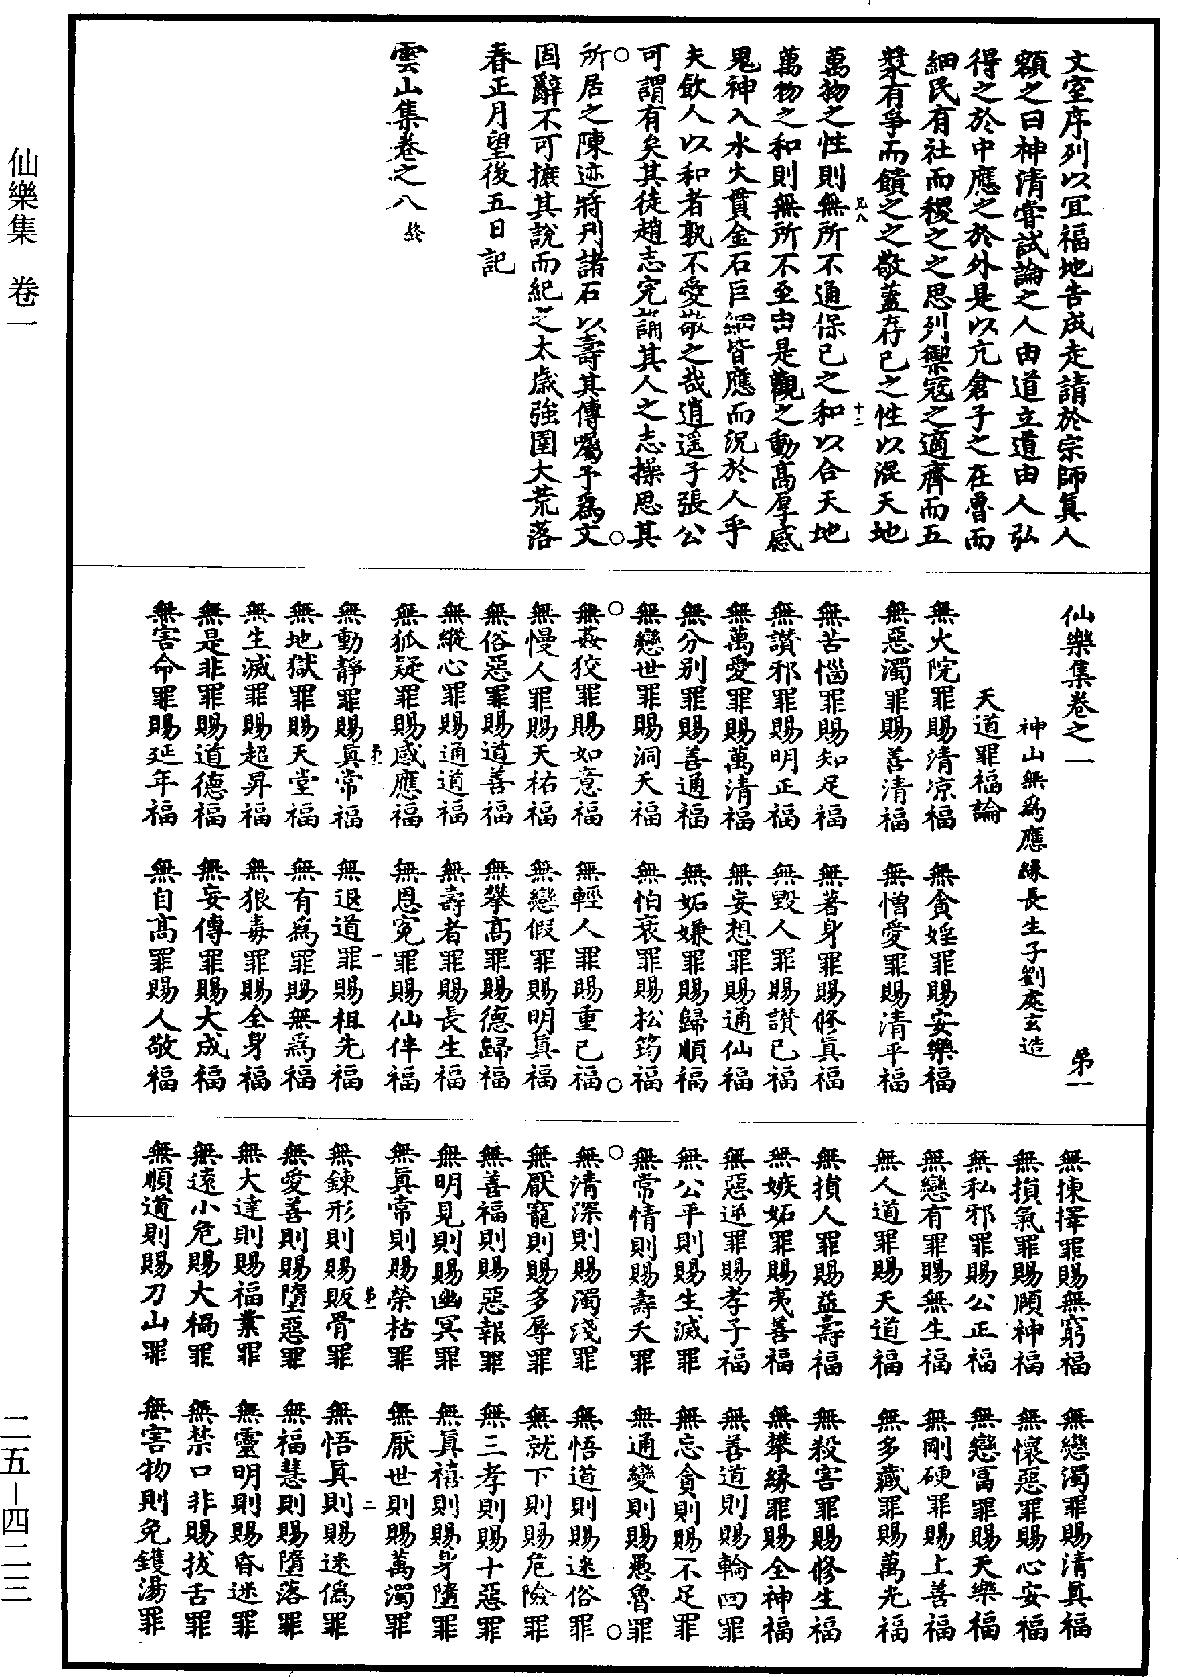 文室序列以宜福地告成走請於宗師真人
額之曰神清嘗試論之人由道立道由人弘
得之於中應之於外是以亢倉子之在魯而
細民有社而稷之之思列禦寇之適齊而五
漿有爭而饋之之敬蓋存己之性以混天地
萬物之性則無所不通保己之和以合天地
萬物之和則無所不至由是觀之動高厚感
鬼神入水火貫金石巨細皆應而況於人乎
夫飲人以和者孰不愛敬之哉逍遥子張公
可謂有矣其徒趙志完誦其人之志操思其
所居之陳迹將刊諸石以壽其傳囑予為文
固辭不可摭其說而紀之太歲強圉大荒落
春正月望後五日記
雲山集卷之八 終
仙樂集卷之一 第一
神山無為應緣長生子劉處玄造
天道罪福論
無火院罪賜清涼福 無貪婬罪賜安樂福
無惡濁罪賜善清福 無憎愛罪賜清平福
無苦惱罪賜知足福 無著身罪賜修真福
無讚邪罪賜明正福 無毀人罪賜讚己福
無萬愛罪賜萬清福 無妄想罪賜通仙福
無分別罪賜善通福 無妬嫌罪賜歸順福
無戀世罪賜洞天福 無怕衰罪賜松筠福
無姦狡罪賜如意福 無輕人罪賜重己福
無慢人罪賜天祐福 無戀假罪賜明真福
無俗惡罪賜道善福 無攀高罪賜德歸福
無縱心罪賜通道福 無壽者罪賜長生福
無狐疑罪賜感應福 無恩冤罪賜仙伴福
無動靜罪賜真常福 無退道罪賜祖先福
無地獄罪賜天堂福 無有為罪賜無為福
無生滅罪賜超昇福 無狠毒罪賜全身福
無是非罪賜道德福 無妄傳罪賜大成福
無害命罪賜延年福 無自高罪賜人敬福
無揀擇罪賜無窮福 無戀濁罪賜清真福
無損氣罪賜頤神福 無懷惡罪賜心安福
無私邪罪賜公正福 無戀富罪賜天樂福
無戀有罪賜無生福 無剛硬罪賜上善福
無人道罪賜天道福 無多藏罪賜萬光福
無損人罪賜益壽福 無殺害罪賜修生福
無嫉妬罪賜夷善福 無攀緣罪賜全神福
無惡逆罪賜孝子福 無善道則賜輪回罪
無公平則賜生滅罪 無忘貪則賜不足罪
無常情則賜壽夭罪 無通變則賜愚魯罪
無清深則賜濁淺罪 無悟道則賜迷俗罪
無厭寵則賜多辱罪 無就下則賜危險罪
無善福則賜惡報罪 無三孝則賜十惡罪
無明見則賜幽冥罪 無真禧則賜身墮罪
無真常則賜榮枯罪 無厭世則賜萬濁罪
無鍊形則賜販骨罪 無悟真則賜迷偽罪
無愛善則賜墮惡罪 無福慧則賜墮落罪
無大達則賜福業罪 無靈明則賜昏迷罪
無遠小危賜大禍罪 無禁口非賜拔舌罪
無順道則賜刀山罪 無害物則免鑊湯罪
仙樂集 卷一
二五－四二三